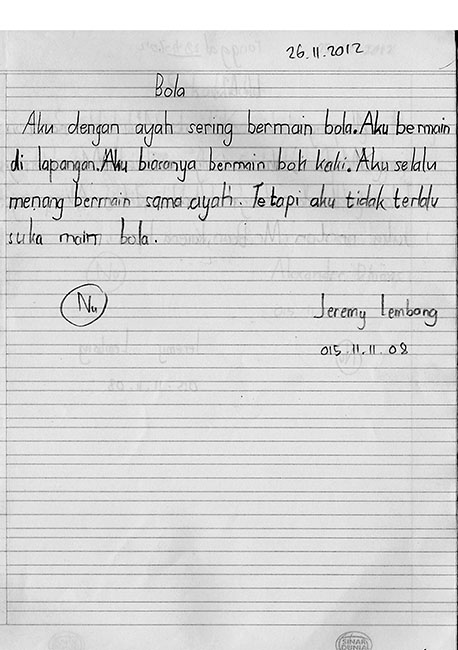 26.11.2012
Bola
Aku dengan ayah sering bermain bola. Aku bermain
di lapangan. Aku biasanya bermain bola kaki. Aku selalu
menang bermain sama ayah. Tetapi aku tidak terlalu
suka maim bola.
Nu
Jeremy Lembong
015.11.11.08
SINAR
DUNIA